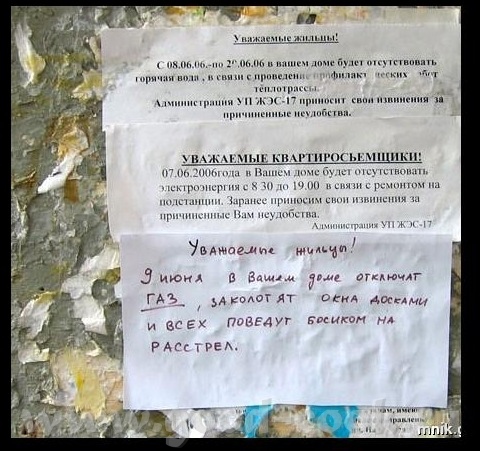 Уважаемые жильцы!
С 08.06.06.-по 20.06.06 в вашем доме будет отсутствовать
горячая вода , в связи с проведение профилактических работ
теплотрассы.
Администрация УП ЖЭС-17 приносит свои извинения за
причиненные неудобства.
УВАЖАЕМЫЕ КВАРТИРОСЬЕМЩИКИ!
07.06.2006года в Вашем доме будет отсутствовать
электроэнергия с 8 30 до 19.00 в связи с ремонтом на
подстанции. Заранее приносим свои извинения за
причиненные Вам неудобства.
Администрация УП ЖЭС-17
Уважаемые жильцы!
9 июня в Вашем доме отключат
ГАЗ, заколотят окна досками
и всех поведут босиком на
расстрел.
mnik.